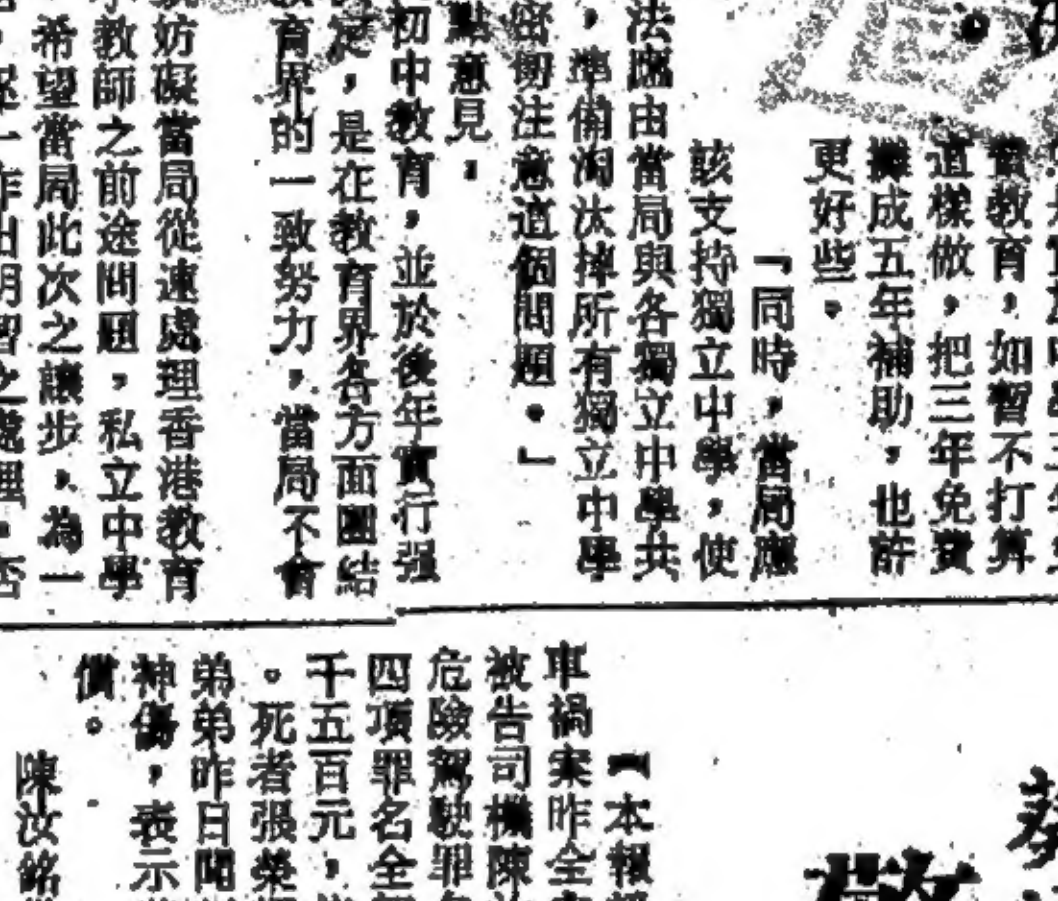 育
費教育，如暫不打算
這樣做，把三年免費
攤成五年補助，也許
更好些。
「同時，當局應
該支持獨立中學，使
法應由當局與各獨立中學共
，準備淘汰掉所有獨立中學
密切注意這個問題。」
點意見，
初中教育，並於後年實行强
定，是在教育界各方面團結
教育界的一致努力，當局不會
妨礙當局從速處理香港教育
教師之前途問題，私立中學
希望當局此次之讓步，為一
作出明智之處理，否
蔡
【本報
車禍案昨全
被告司機陳
危險駕駛罪
四項罪名全
千五百元，
。死者張榮
弟弟昨日聞
神傷，表示
償。
陳汝銘